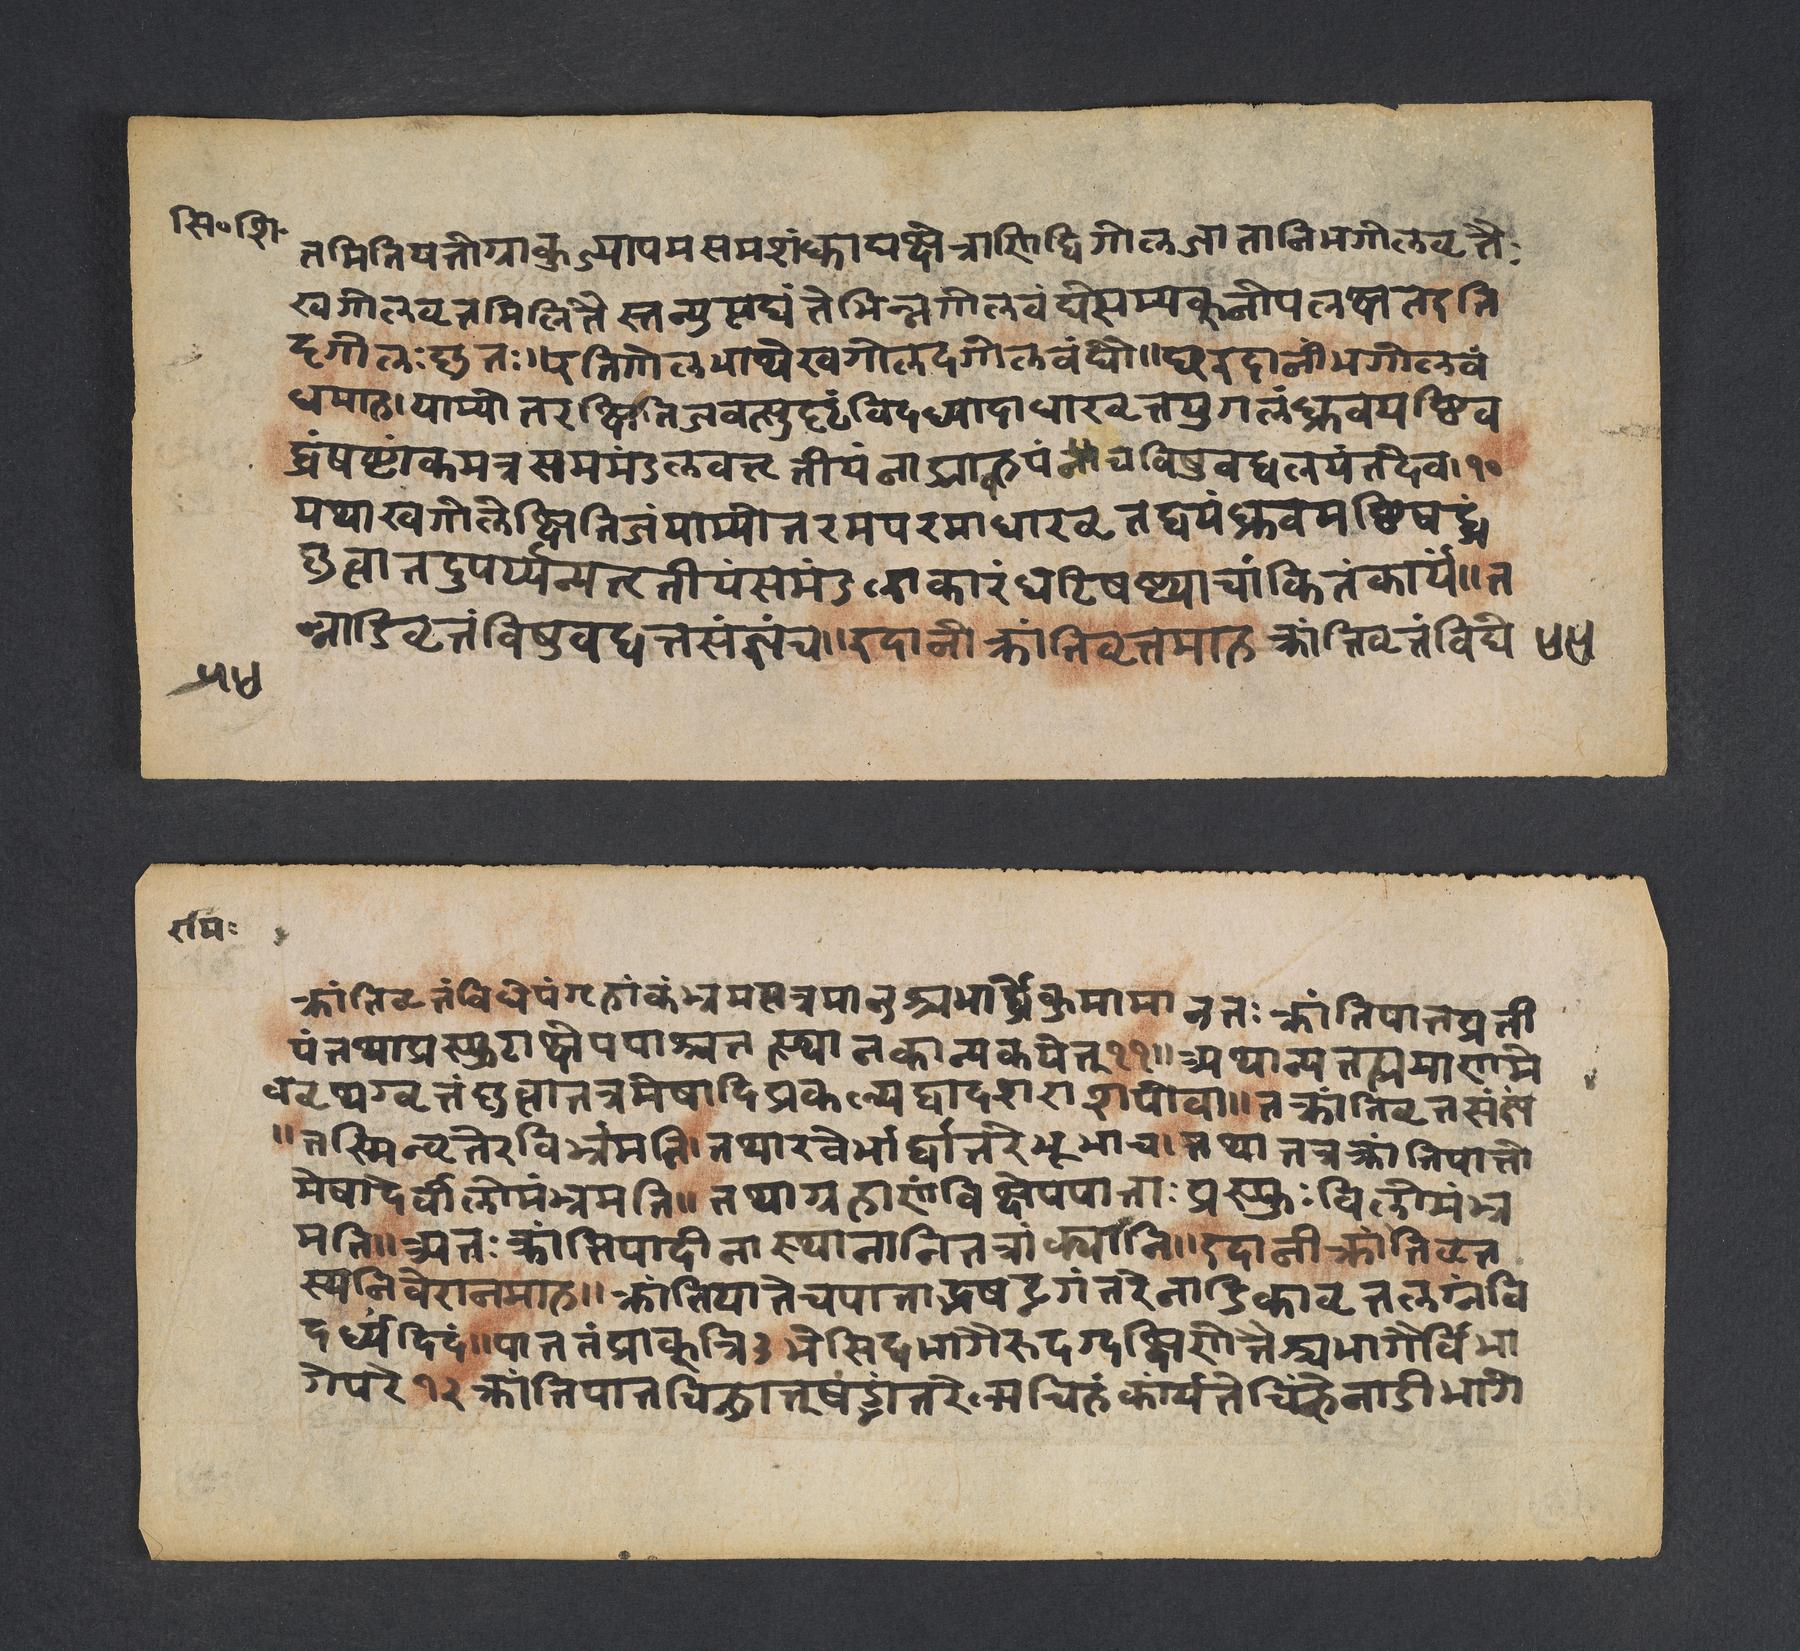 सि॰शि॰
तमितियतोग्राकुज्यापमसमशंक्वाद्यक्षेत्राणिद्विगोलजातानिभगोलवृत्तैः
खगोलवृत्तमिलितैस्तान्युत्पद्यंतेभिन्नगोलबंधेसम्यक्नोपलक्ष्यतेइति
दृगोलःकृतः॥इतिगोलभाष्येखगोलदृगोलबंधो॥इदानींभगोलबं
धमाह।याम्योत्तरक्षितिजवत्सुदृढंविदध्यादाधारवृत्तयुगलंध्रुवयष्टिब
द्धंषष्ट्यंकमत्रसममंडलवत्तृतीयंनाड्याह्वयंचविषुवद्वलयंतदेव।१०
यथाखगोलेक्षितिजंयाम्योत्तरमपरमाधारवृत्तद्वयंध्रुवयष्टिबद्धं
कृत्वातदुपर्य्यन्यत्तृतीयंसमंडलाकारंघटिषष्ट्याचांकितंकार्यं॥त
न्नाडिवृत्तंविषुवद्वृत्तसंज्ञंच॥इदानींक्रांतिवृत्तमाहक्रांतिवृत्तंविधे ५५
५५
रामः
क्रांतिवृत्तंविधेयंगृहांकंभ्रमत्यत्रभानुश्चभार्द्धेकुभाभानुतःक्रांतिपातप्रती
पंतथाप्रस्फुटाक्षेपपाताश्चतत्स्थानकान्यंकयेत्११॥अथान्यत्तत्प्रमाणमे
वविषुवद्वृत्तंकृत्वातत्रमेषादिप्रकल्प्यद्वादशराशयोंक्या॥तत्क्रांतिवृत्तसंज्ञं
॥तस्मिन्वृत्तेरविर्भ्रमति।तथारवेर्भार्द्धांतरेभूभाच।तथातत्रक्रांतिपातो
मेषादेर्विलोमंभ्रमति॥तथाग्रहाणांविक्षेपपाताःप्रस्फुटाःविलोमंभ्र
मंति॥अतःक्रांतिपातादीनांस्थानानितत्रांक्यानि॥इदानींक्रांतिवृत्त
स्यनिवेशनमाह॥क्रांतिपातेचपाताद्भषट्कांतरेनाडिकावृत्तलग्नंवि
दध्यदिदं॥पाततंप्राक्त्रि३भेसिद्धभागैरुदग्दक्षिणेतैश्चभागैर्विभा
गेपरे१२क्रांतिपातचिह्नात्षड्भांतरेन्यचिह्नंकार्यंतेचिह्नेनाडीभागे